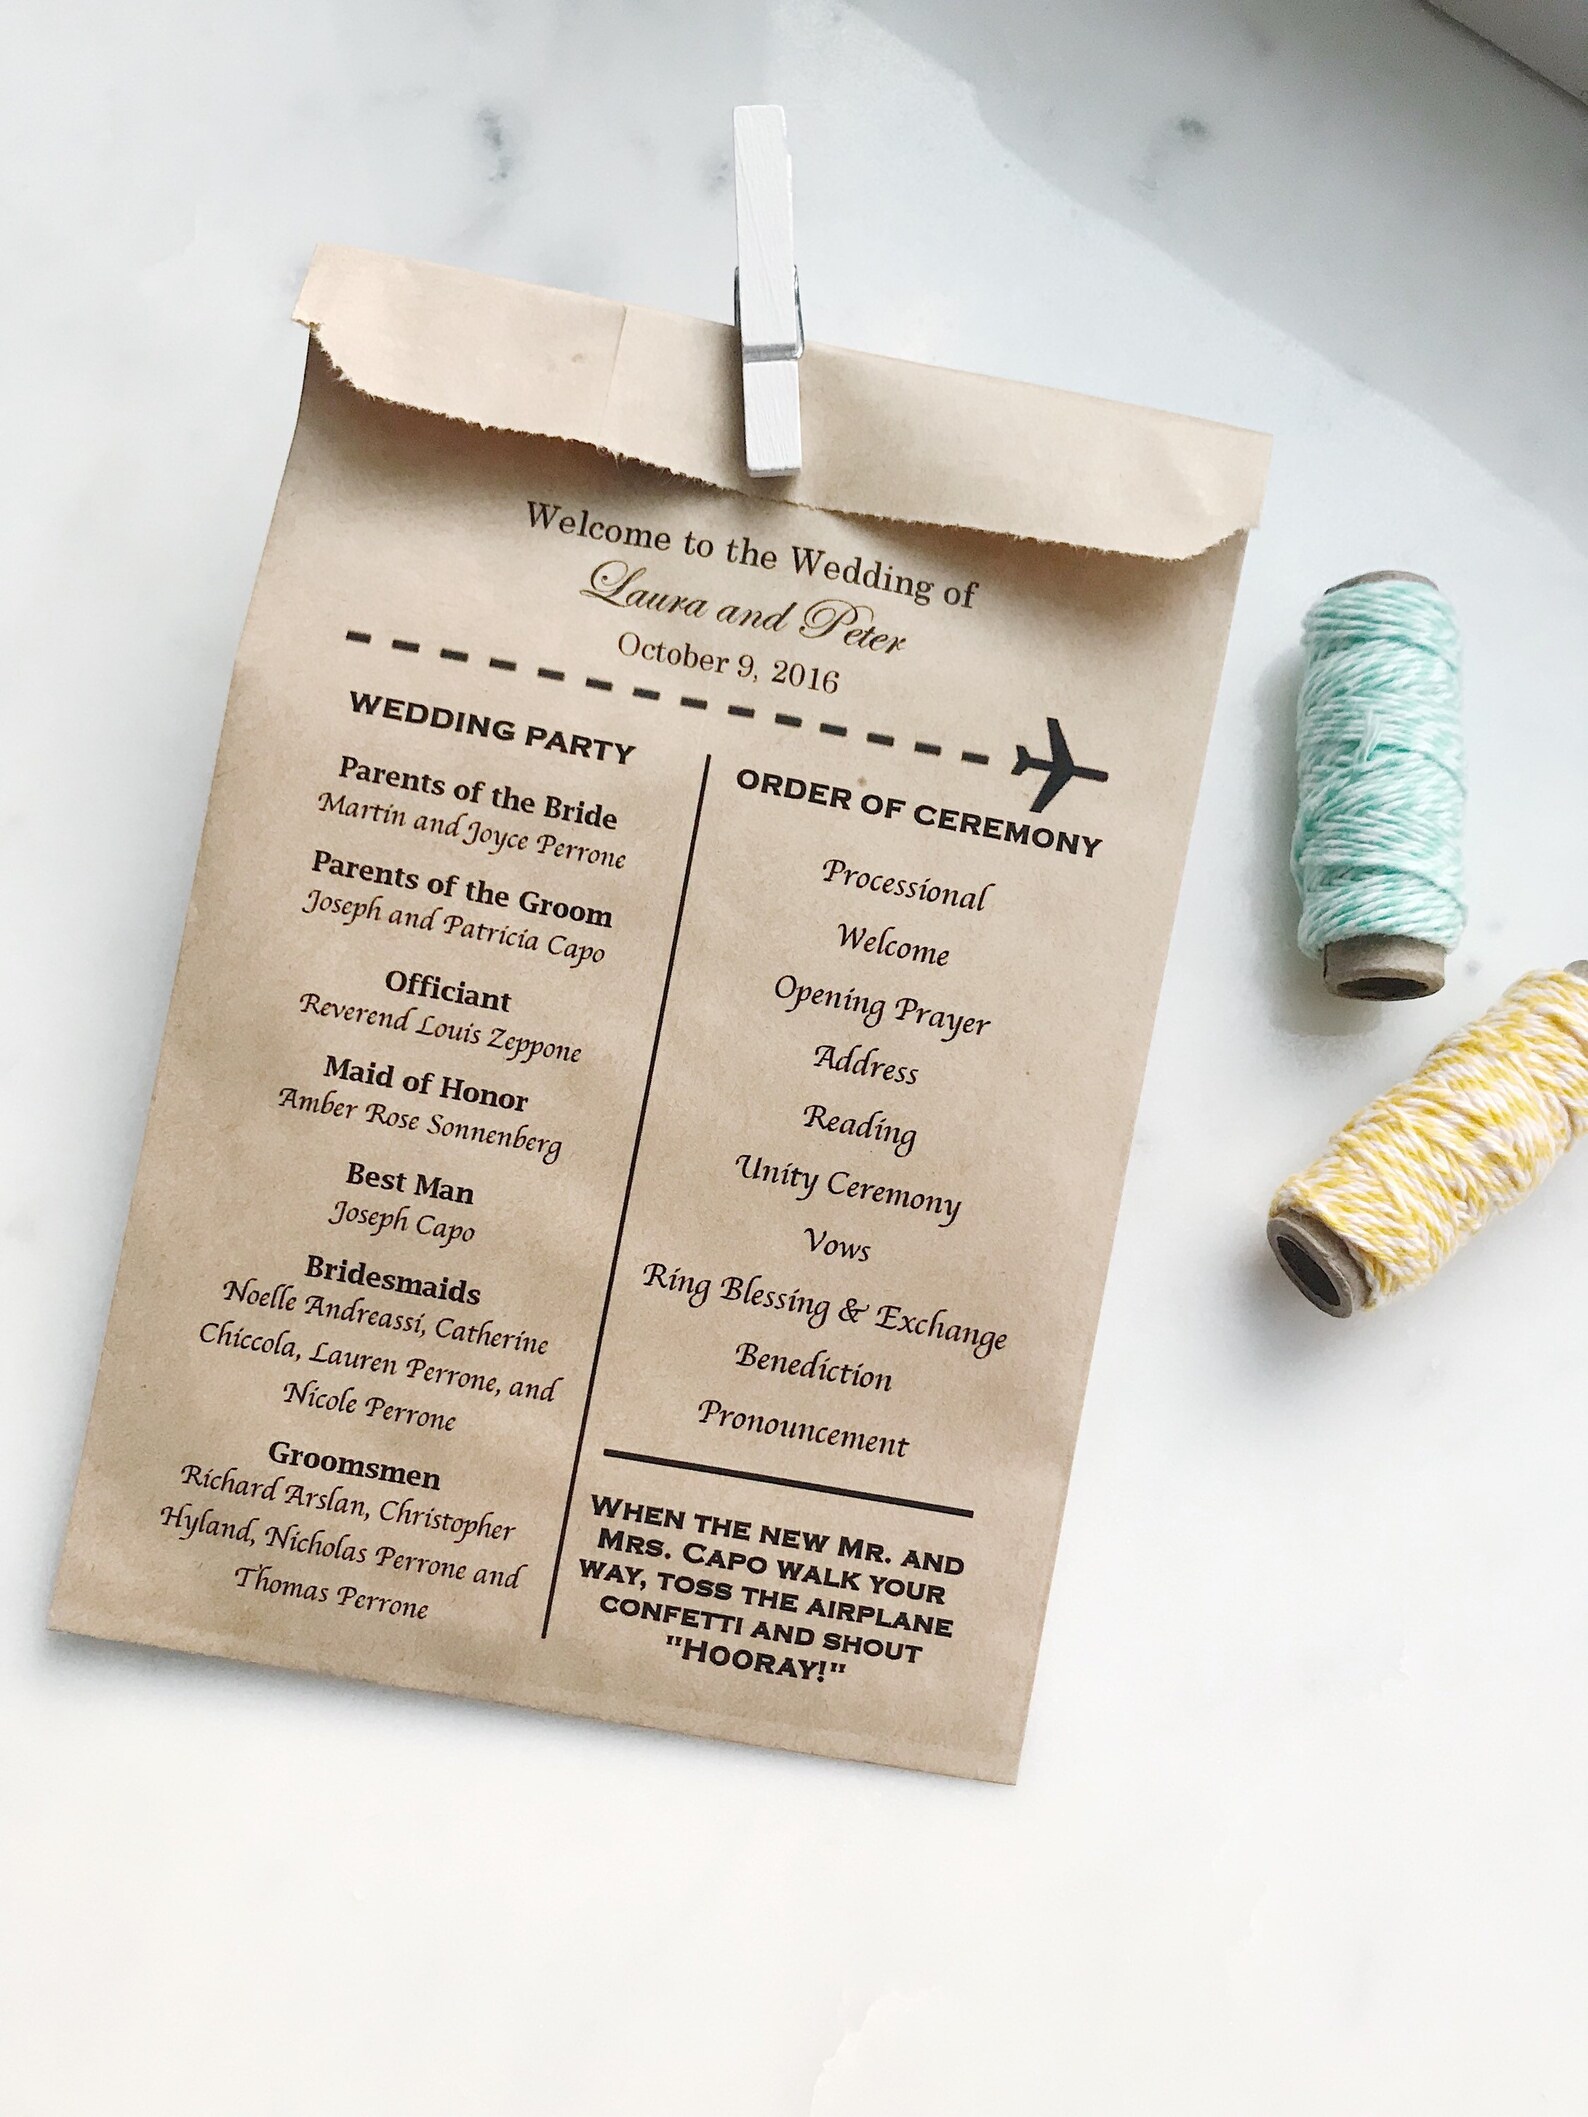 Welcome to the Wedding of
Laura and Peter
October 9, 2016
WEDDING PARTY
Parents of the Bride
Martin and Joyce Perrone
Parents of the Groom
Joseph and Patricia Capo
Officiant
Reverend Louis Zeppone
Maid of Honor
Amber Rose Sonnenberg
Best Man
Joseph Capo
Bridesmaids
Noelle Andreassi, Catherine
Chiccola, Lauren Perrone, and
Nicole Perrone
Groomsmen
Richard Arslan, Christopher
Hyland, Nicholas Perrone and
Thomas Perrone
ORDER OF CEREMONY
Processional
Welcome
Opening Prayer
Address
Reading
Unity Ceremony
Vows
Ring Blessing & Exchange
Benediction
Pronouncement
WHEN THE NEW MR. AND
MRS. CAPO WALK YOUR
WAY, TOSS THE AIRPLANE
CONFETTI AND SHOUT
"HOORAY!"